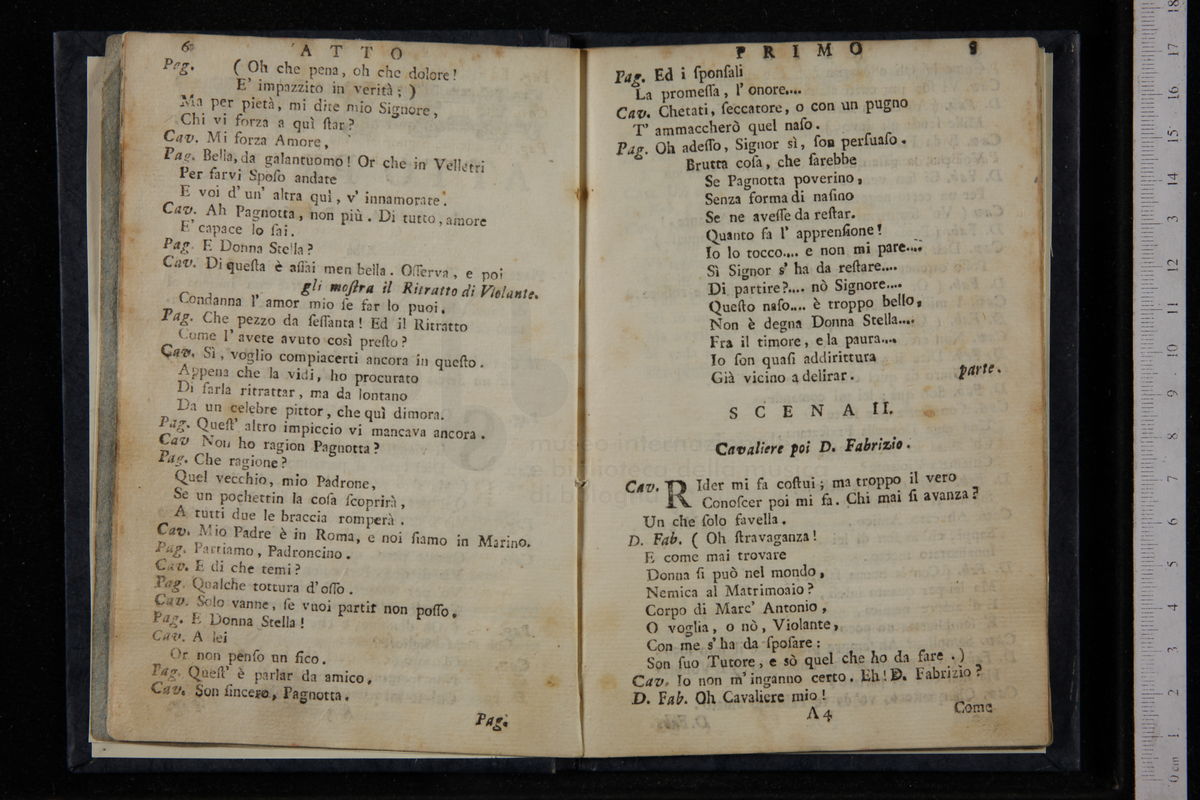 6
ATTO
Pag. ( Oh che pena, oh che dolore!
E' impazzito in verità; )
Ma per pietà, mi dite mio Signore,
Chi vi forza a quì ſtar?
Cav. Mi forza Amore,
Pag. Bella, da galantuomo! Or che in Velletri
Per farvi Spoſo andate
E voi d' un' altra quì, v' innamorate.
Cav. Ah Pagnotta, non più. Di tutto, amore
E' capace lo ſai.
Pag. E Donna Stella?
Cav. Di queſta è aſſai men bella. Oſſerva, e poi
gli moſtra il Ritratto di Violante.
Condanna l' amor mio ſe far lo puoi.
Pag. Che pezzo da ſeſſanta! Ed il Ritratto
Come l' avete avuto così preſto?
Cav. Sì, voglio compiacerti ancora in queſto.
Appena che la vidi, ho procurato
Di farla ritrattar, ma da lontano
Da un celebre pittor, che quì dimora.
Pag. Queſt' altro impiccio vi mancava ancora.
Cav Non ho ragion Pagnotta?
Pag. Che ragione?
Quel vecchio, mio Padrone,
Se un pochettin la coſa ſcoprirà,
A tutti due le braccia romperà.
Cav. Mio Padre è in Roma, e noi ſiamo in Marino.
Pag. Partiamo, Padroncino.
Cav. E di che temi?
Pag. Qualche tottura d'oſſo.
Cav. Solo vanne, ſe vuoi partir non poſſo.
Pag. E Donna Stella!
Cav. A lei
Or non penſo un fico.
Pag. Queſt' è parlar da amico.
Cav. Son ſincero, Pagnotta.
Pag.
PRIMO
Pag. Ed i ſponſali
La promeſſa, l' onore....
Cav. Chetati, ſeccatore, o con un pugno
T' ammaccherò quel naſo.
Pag. Oh adeſſo, Signor sì, ſon perſuaſo.
Brutta coſa, che ſarebbe
Se Pagnotta poverino,
Senza forma di naſino
Se ne aveſſe da reſtar.
Quanto fa l' apprenſione!
Io lo tocco.... e non mi pare....
Sì Signor s' ha da reſtare....
Di partire?.... nò Signore....
Queſto naſo.... è troppo bello,
Non è degna Donna Stella....
Fra il timore, e la paura....
Io ſon quaſi addirittura
Già vicino a delirar.
parte.
SCENA II.
Cavaliere poi D. Fabrizio.
Cav. RIder mi fa coſtui; ma troppo il vero
Conoſcer poi mi fa. Chi mai ſi avanza?
Un che ſolo favella.
D. Fab. ( Oh ſtravaganza!
E come mai trovare
Donna ſi può nel mondo,
Nemica al Matrimoaio?
Corpo di Marc' Antonio,
O voglia, o nò, Violante,
Con me s' ha da ſpoſare:
Son ſuo Tutore, e sò quel che ho da fare.)
Cav. Io non m' inganno certo. Eh! D. Fabrizio?
D. Fab. Oh Cavaliere mio!
A 4
Come